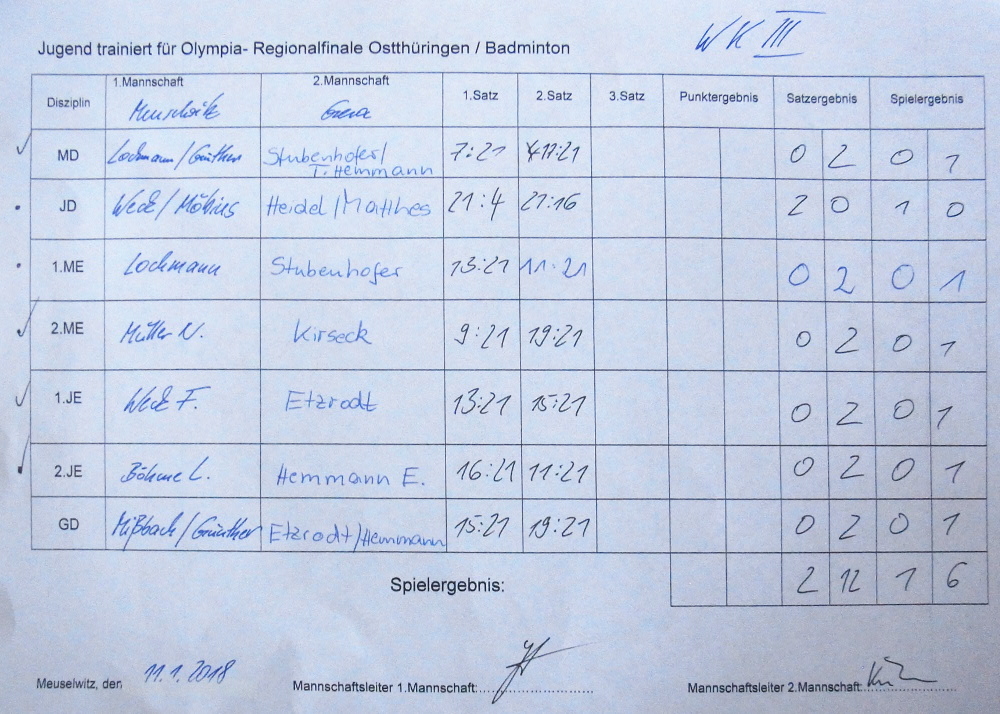 WK III
Jugend trainiert für Olympia- Regionalfinale Ostthüringen / Badminton
Disziplin 1.Mannschaft 2.Mannschaft 1.Satz 2.Satz 3.Satz Punktergebnis Satzergebnis Spielergebnis
Meuselwitz Gera
MD Lochmann/Günther Stubenhofer/ T. Hemmann 7:21 17:21 0 2 0 1
JD Weck/Möbius Heidel/Matthes 21:4 21:16 2 0 1 0
1.ME Lochmann Stubenhofer 13:21 11:21 0 2 0 1
2.ME Müller N. Kirseck 9:21 19:21 0 2 0 1
1.JE Weck F. Etzrodt 13:21 15:21 0 2 0 1
2.JE Böhme L. Hemmann E. 16:21 11:21 0 2 0 1
GD Mißbach/Günther Etzrodt/Hemmann 15:21 19:21 0 2 0 1
Spielergebnis: 2 12 1 6
Meuselwitz, den 11.1.2018 Mannschaftsleiter 1.Mannschaft: Mannschaftsleiter 2.Mannschaft: